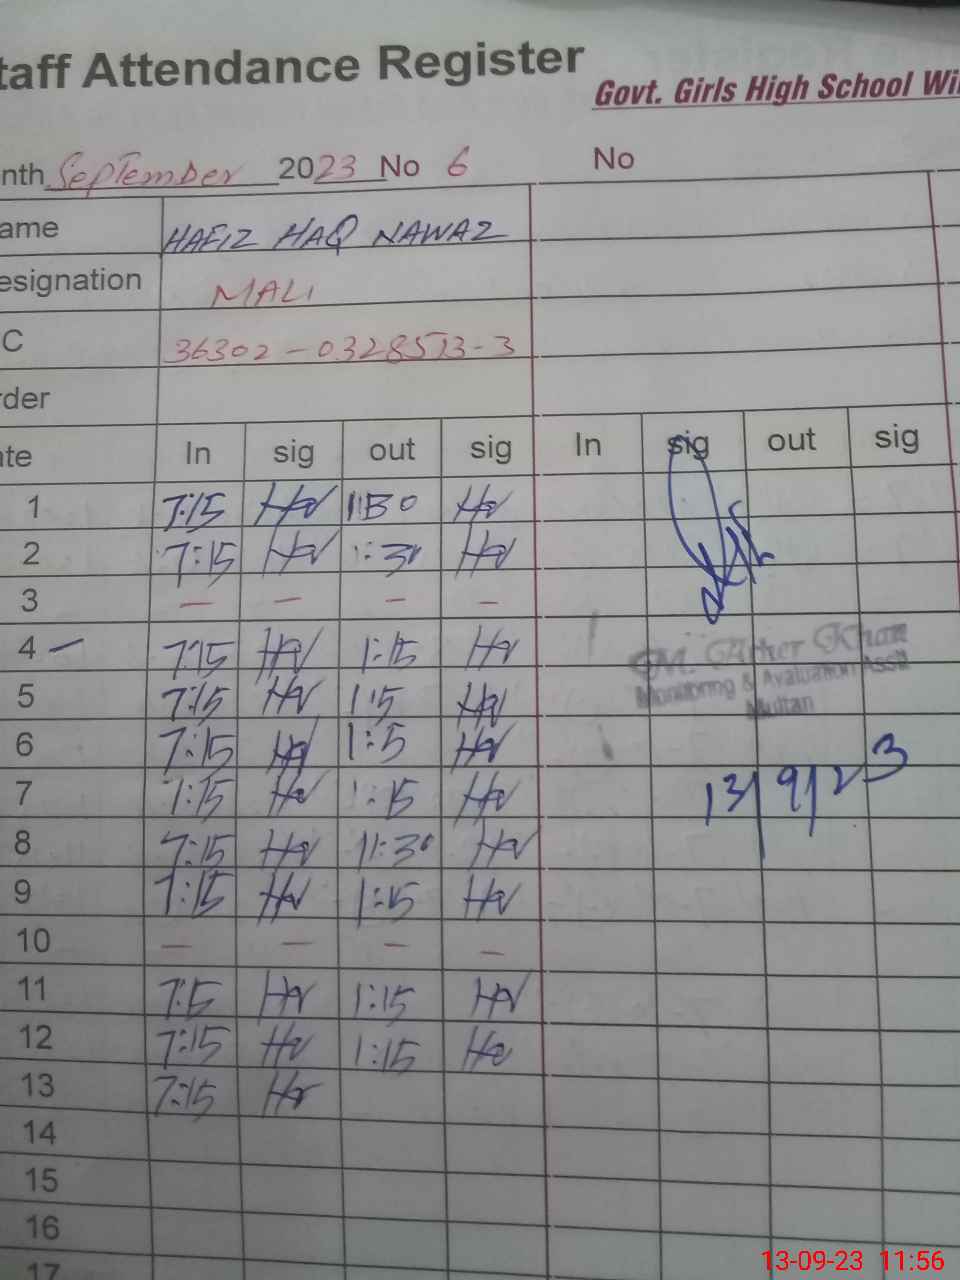 taff Attendance Register
Govt. Girls High School Wi
nth September 2023 No 6 No
ame HAFIZ HAQ NAWAZ
esignation MALI
C 36302-0328513-3
rder
ate In sig out sig In sig out sig
1 7:15 1:30
2 7:15 1:30
3 — — — —
4 — 7:15 1:15
5 7:15 1:15
6 7:15 1:5
7 7:15 1:15
8 7:15 11:30
9 7:15 1:15
10 — — — —
11 7:15 1:15
12 7:15 1:15
13 7:15
14
15
16
17
M. Ather Khan
Monitoring & Avaluation Asstt
Multan
13/9/23
13-09-23 11:56